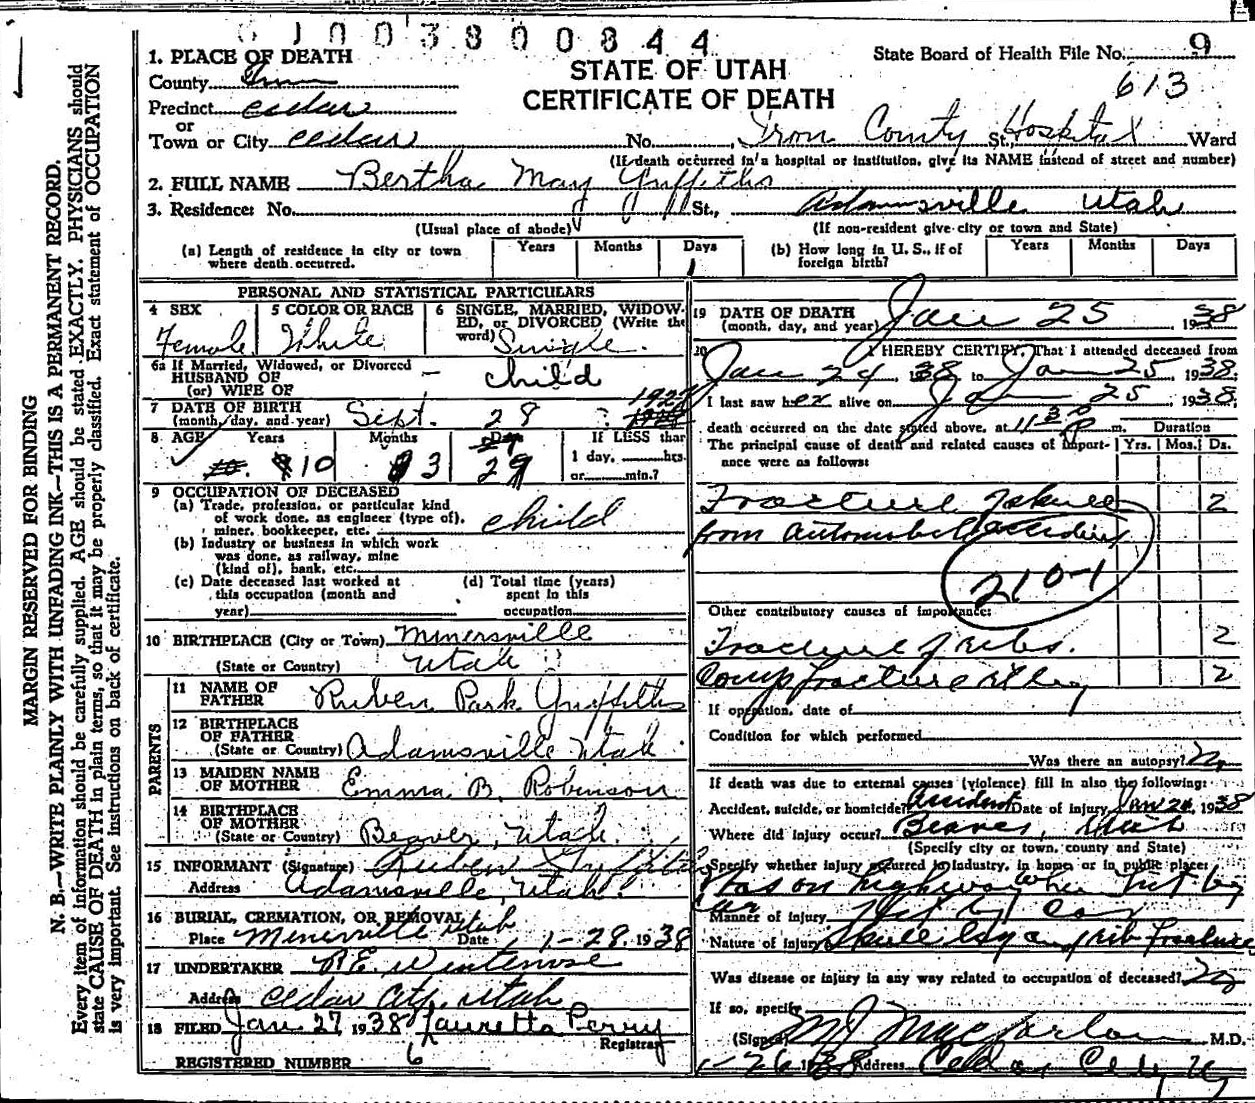 0100380084 4
1. PLACE OF DEATH
State Board of Health File No. 9
County Iron
STATE OF UTAH
613
Precinct cedar
CERTIFICATE OF DEATH
or
Town or City cedar No. Iron County St., Hospital Ward
(If death occurred in a hospital or institution, give its NAME instead of street and number)
2. FULL NAME Bertha May Griffiths
3. Residence: No. St., Adamsville Utah
(Usual place of abode) (If non-resident give city or town and State)
(a) Length of residence in city or town where death occurred. Years Months Days 1
(b) How long in U. S., if of foreign birth? Years Months Days
PERSONAL AND STATISTICAL PARTICULARS
4 SEX Female
5 COLOR OR RACE White
6 SINGLE, MARRIED, WIDOWED, or DIVORCED (Write the word) Single.
6a If Married, Widowed, or Divorced
HUSBAND OF
(or) WIFE OF - child
7 DATE OF BIRTH (month, day, and year) Sept. 28 1927
8 AGE Years 10 Months 3 Days 29
If LESS than 1 day, hrs. or min.?
9 OCCUPATION OF DECEASED
(a) Trade, profession, or particular kind of work done, as engineer (type of), miner, bookkeeper, etc. child
(b) Industry or business in which work was done, as railway, mine (kind of), bank, etc.
(c) Date deceased last worked at this occupation (month and year)
(d) Total time (years) spent in this occupation
10 BIRTHPLACE (City or Town) Minersville
(State or Country) Utah
PARENTS
11 NAME OF FATHER Ruben Park Griffiths
12 BIRTHPLACE OF FATHER (State or Country) Adamsville Utah
13 MAIDEN NAME OF MOTHER Emma B. Robinson
14 BIRTHPLACE OF MOTHER (State or Country) Beaver, Utah.
15 INFORMANT (Signature) Reuben Griffiths
Address Adamsville, Utah.
16 BURIAL, CREMATION, OR REMOVAL
Place Minersville Utah Date 1-28. 1938
17 UNDERTAKER
Address Cedar City, Utah
18 FILED Jan. 27 1938 Lauretta Perry
Registrar
REGISTERED NUMBER 6
19 DATE OF DEATH (month, day, and year) Jan 25 1938
20 I HEREBY CERTIFY, That I attended deceased from
Jan 24 1938 to Jan 25 1938.
I last saw her alive on Jan 25 1938.
death occurred on the date stated above, at 11 30 P m. Duration
The principal cause of death and related causes of importance were as follows: Yrs. Mos. Ds.
Fracture of skull 2
from Automobile accident
210-1
Other contributory causes of importance:
Fracture of ribs. 2
Comp fracture of leg 2
If operation, date of
Condition for which performed
Was there an autopsy? No
If death was due to external causes (violence) fill in also the following:
Accident, suicide, or homicide? Accident Date of injury Jan 24, 1938
Where did injury occur? Beaver, Utah
(Specify city or town, county and State)
Specify whether injury occurred in industry, in home or in public place:
Was on highway when hit by
car
Manner of injury Hit by Car
Nature of injury Skull leg and rib fracture
Was disease or injury in any way related to occupation of deceased? No
If so, specify
(Signed) M J Macfarlane M.D.
1-26 1938 Address Cedar City, U
MARGIN RESERVED FOR BINDING
N. B.—WRITE PLAINLY WITH UNFADING INK—THIS IS A PERMANENT RECORD.
Every item of information should be carefully supplied. AGE should be stated EXACTLY. PHYSICIANS should
state CAUSE OF DEATH in plain terms, so that it may be properly classified. Exact statement of OCCUPATION
is very important. See instructions on back of certificate.